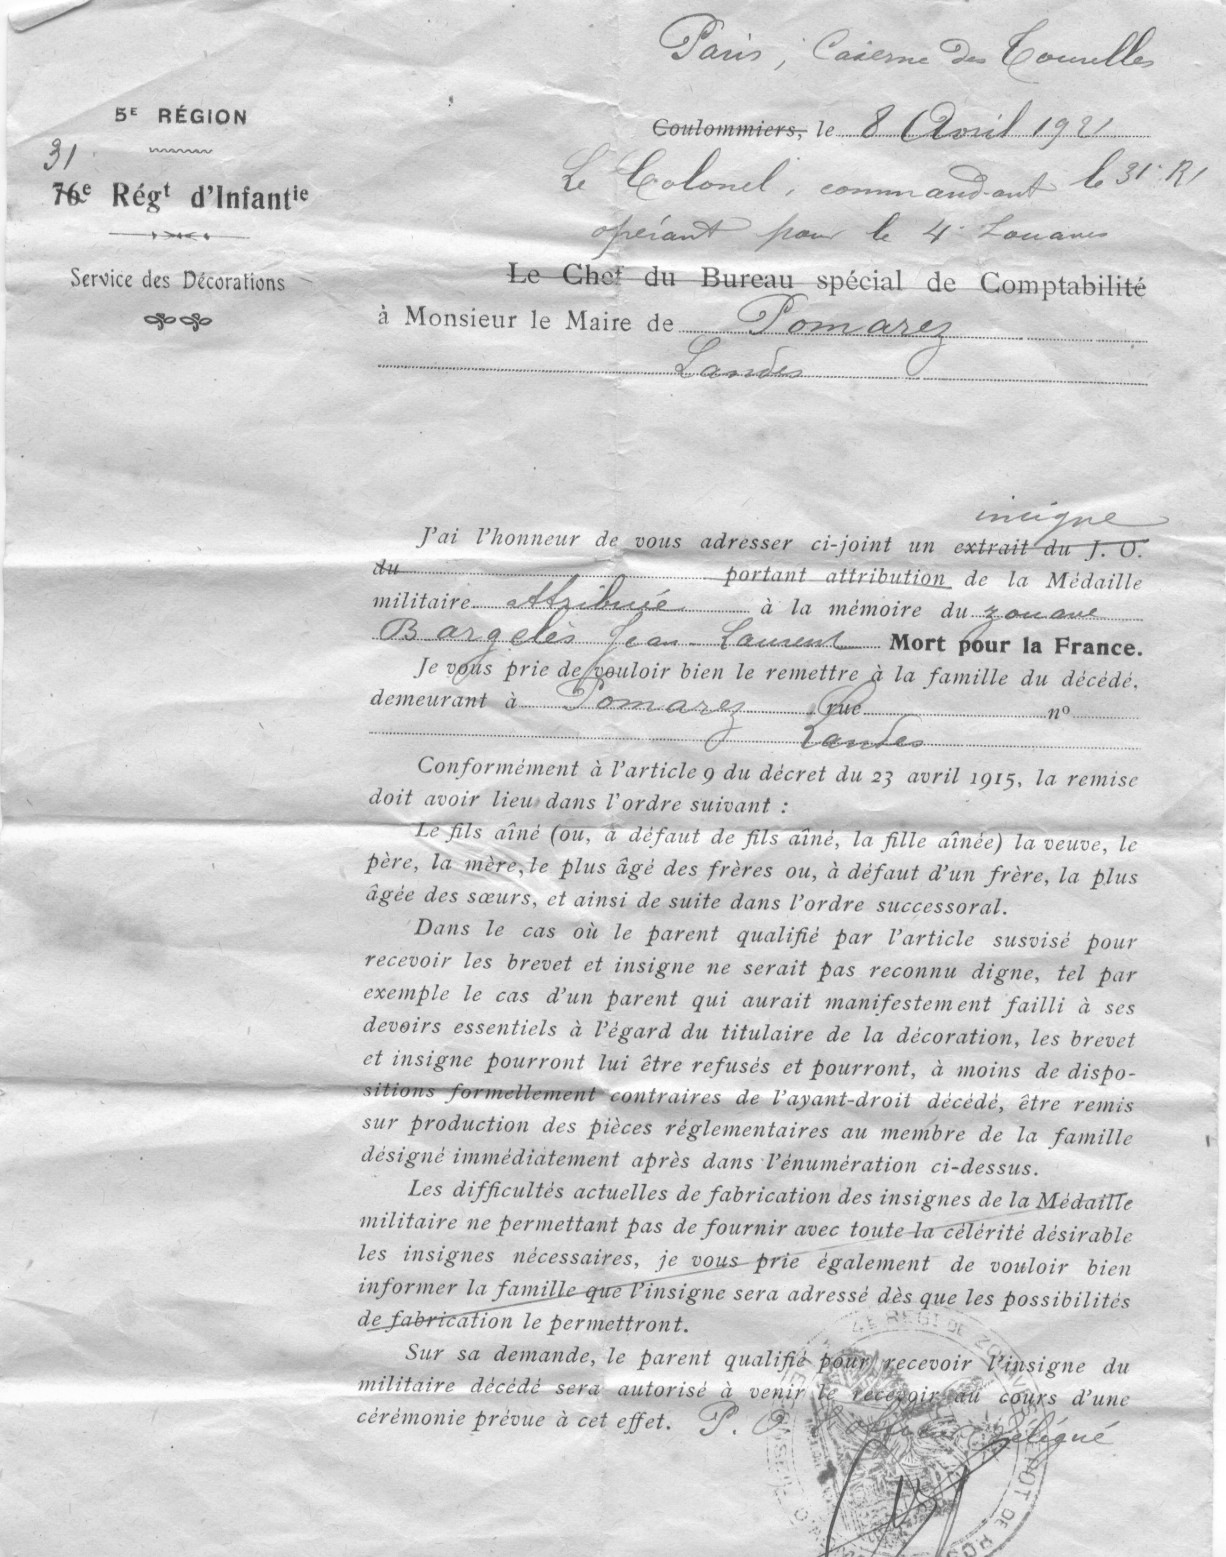 Paris, Caserne des Tourelles
5E RÉGION
Coulommiers, le 8 Avril 1921
31
76e Régt d'Infantie
Le Colonel, commandant le 31e RI
opérant pour le 4e Zouaves
Service des Décorations
Le Chef du Bureau spécial de Comptabilité
à Monsieur le Maire de Pomarez
Landes
insigne
J'ai l'honneur de vous adresser ci-joint un extrait du J. O.
du portant attribution de la Médaille
militaire attribuée à la mémoire du zouave
Bargelès Jean-Laurent Mort pour la France.
Je vous prie de vouloir bien le remettre à la famille du décédé,
demeurant à Pomarez rue no
Landes
Conformément à l'article 9 du décret du 23 avril 1915, la remise
doit avoir lieu dans l'ordre suivant :
Le fils aîné (ou, à défaut de fils aîné, la fille aînée) la veuve, le
père, la mère, le plus âgé des frères ou, à défaut d'un frère, la plus
âgée des sœurs, et ainsi de suite dans l'ordre successoral.
Dans le cas où le parent qualifié par l'article susvisé pour
recevoir les brevet et insigne ne serait pas reconnu digne, tel par
exemple le cas d'un parent qui aurait manifestement failli à ses
devoirs essentiels à l'égard du titulaire de la décoration, les brevet
et insigne pourront lui être refusés et pourront, à moins de dispo-
sitions formellement contraires de l'ayant-droit décédé, être remis
sur production des pièces réglementaires au membre de la famille
désigné immédiatement après dans l'énumération ci-dessus.
Les difficultés actuelles de fabrication des insignes de la Médaille
militaire ne permettant pas de fournir avec toute la célérité désirable
les insignes nécessaires, je vous prie également de vouloir bien
informer la famille que l'insigne sera adressé dès que les possibilités
de fabrication le permettront.
Sur sa demande, le parent qualifié pour recevoir l'insigne du
militaire décédé sera autorisé à venir le recevoir au cours d'une
cérémonie prévue à cet effet. P. O. délégué
4E REGT DE ZOUAVES DEPOT DE